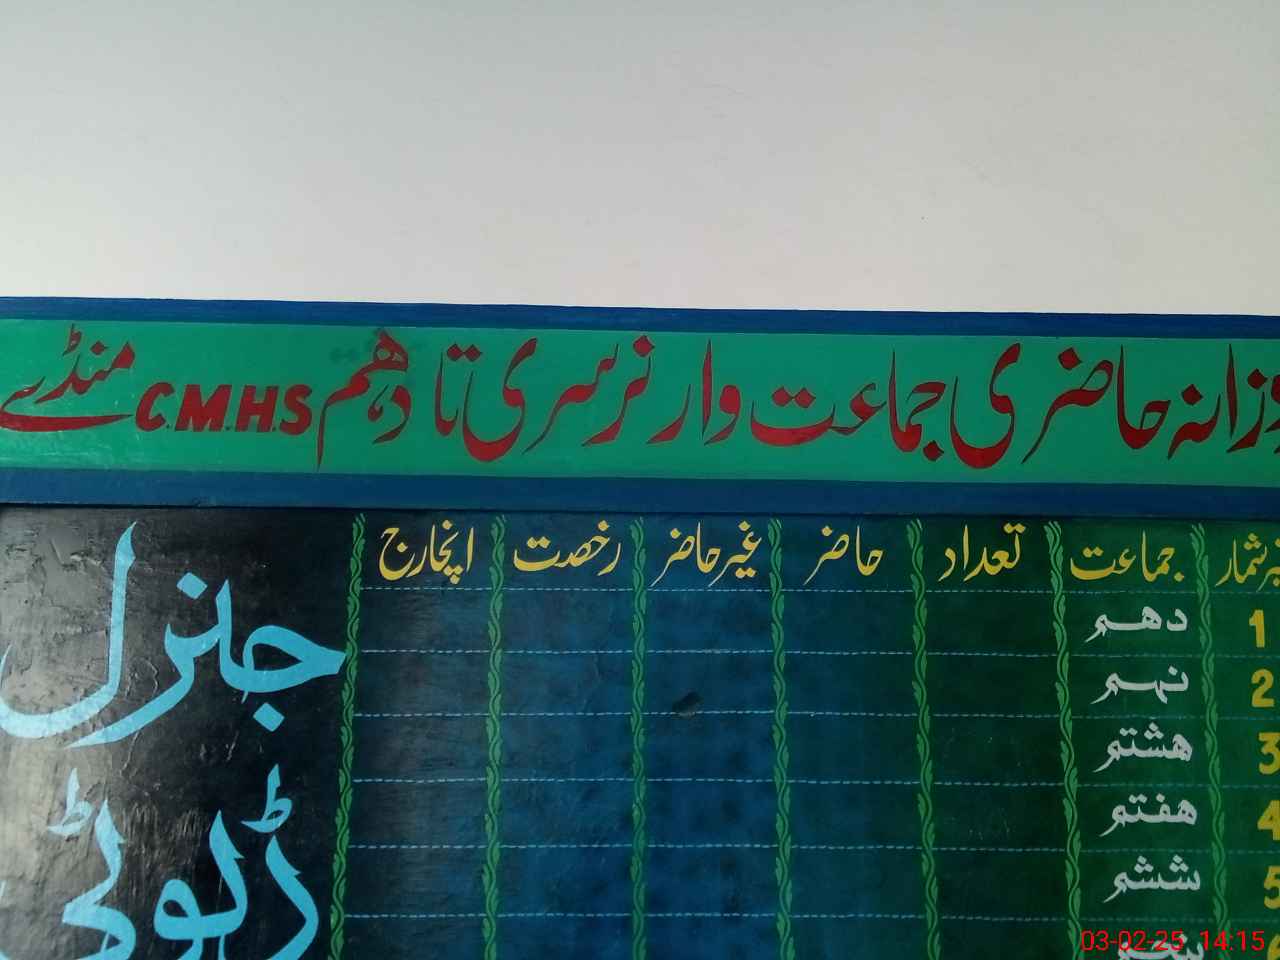 روزانہ حاضری جماعت وار نرسری تا دھم C.M.H.S منڈے
نمبر شمار جماعت تعداد حاضر غیر حاضر رخصت انچارج
1 دھم
2 نہم
3 ھشتم
4 ھفتم
5 ششم
جنرل
ڈیوٹی
03-02-25 14:15